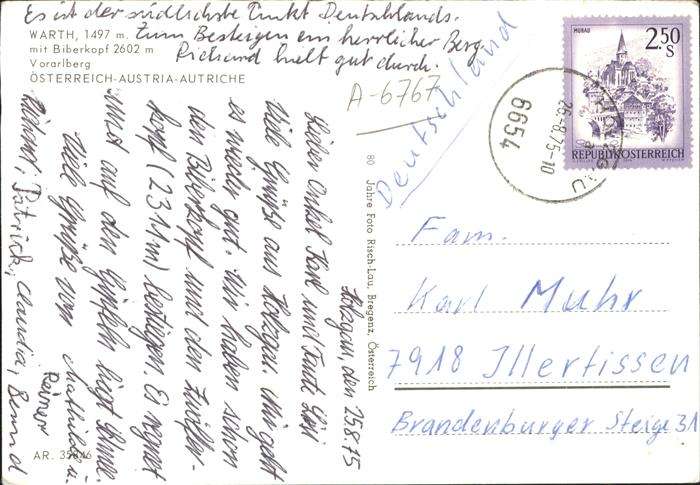 Es ist der südlichste Punkt Deutschlands.
Zum Besteigen ein herrlicher Berg.
Richard hielt gut durch.
WARTH, 1497 m.
mit Biberkopf 2602 m
Vorarlberg
ÖSTERREICH-AUSTRIA-AUTRICHE
A-6767
Deutschland
Holzgau, den 25.8.75
Lieber Onkel Karl und Tante Lisi
Viele Grüße aus Holzgau. Mir geht
es wieder gut. Wir haben schon
den Biberkopf und den
kopf bestiegen. Es regnet
und auf den Gipfeln liegt Schnee.
Viele Grüße von Mathilde u.
Reiner
Richard, Patrick, Claudia, Bernd
AR. 35846
80 Jahre Foto Risch-Lau, Bregenz, Österreich
MURAU
2.50
S
REPUBLIK ÖSTERREICH
6654
26.-8.75-10
HOLZGAU
Fam.
Karl Muhr
7918 Illertissen
Brandenburger Steige 31